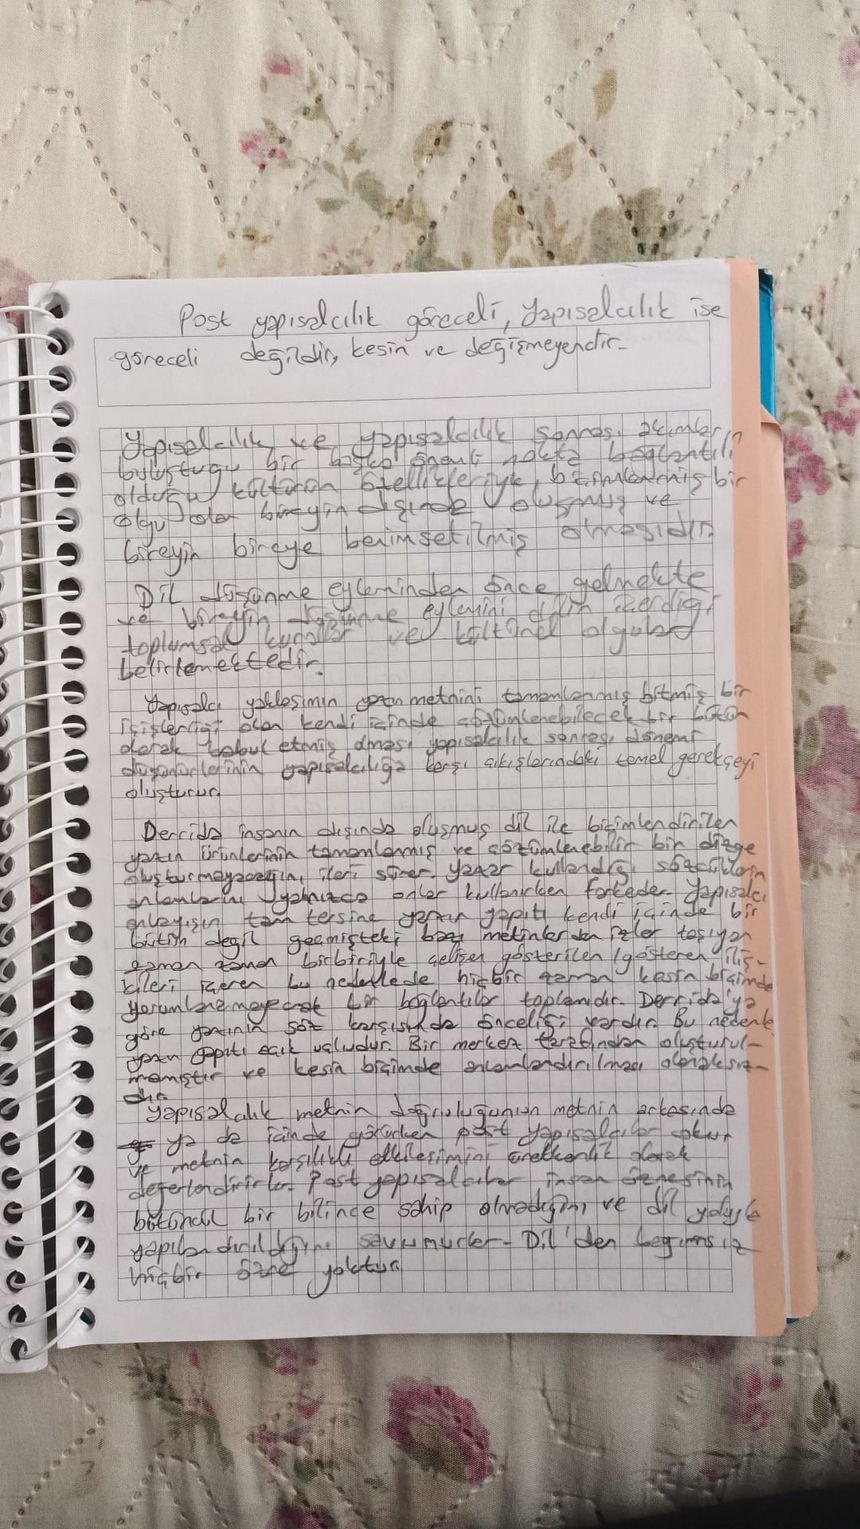 Post yapısalcılık göreceli, yapısalcılık ise
göreceli değildir, kesin ve değişmeyendir.
Yapısalcılık ve yapısalcılık sonrası akımlar
buluştuğu bir başka önemli nokta bağlantılı
olduğu kültürün özellikleriyle, biçimlenmiş bir
olgu olan bireyin dışında oluşmuş ve
bireyin bireye benimsetilmiş olmasıdır.
Dil düşünme eyleminden önce gelmekte
ve bireyin düşünme eylemini dilin içerdiği
toplumsal kurallar ve kültürel olgular
belirlemektedir.
Yapısalcı yaklaşımın yazın metnini tamamlanmış bitmiş bir
içişlerliği olan kendi içinde çözümlenebilecek bir bütün
olarak kabul etmiş olması yapısalcılık sonrası dönemi
düşünürlerinin yapısalcılığa karşı çıkışlarındaki temel gerekçeyi
oluşturur.
Derrida insanın dışında oluşmuş dil ile biçimlendirilen
yazın ürünlerinin tamamlanmış ve çözümlenebilir bir dizge
oluşturmayacağını, ileri sürer. yazar kullandığı sözcüklerin
anlamlarını yalnızca onlar kullanırken farkeder. Yapısalcı
anlayışın tam tersine yazın yapıtı kendi içinde bir
bütün değil geçmişteki bazı metinlerden izler taşıyan
zaman zaman birbiriyle çelişen gösterilen/gösteren iliş-
kileri içeren bu nedenlede hiçbir zaman kesin biçimde
yorumlanamayacak bir bağlantılar toplamıdır. Derrida'ya
göre yazının söz karşısında önceliği vardır. Bu nedenle
yazın yapıtı açık uçludur. Bir merkez tarafından oluşturul-
mamıştır ve kesin biçimde anlamlandırılması olanaksız-
dır.
Yapısalcılık metnin doğruluğunun metnin arkasında
ya da içinde görürken post yapısalcılar okur
ve metnin karşılıklı etkileşimini üretkenlik olarak
değerlendirirler. Post yapısalcılar insan öznesinin
bütüncül bir bilince sahip olmadığını ve dil yoluyla
yapılandırıldığını savunurlar. Dil'den bağımsız
hiçbir özne yoktur.